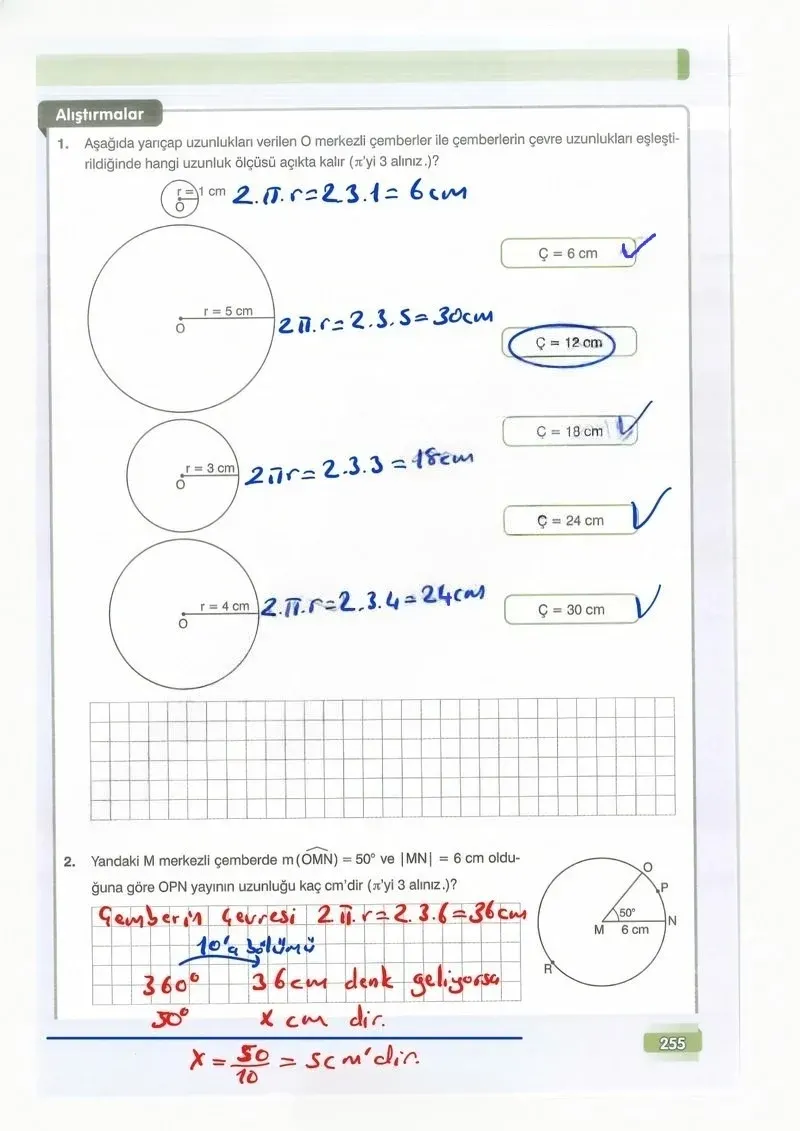 Alıştırmalar
1. Aşağıda yarıçap uzunlukları verilen O merkezli çemberler ile çemberlerin çevre uzunlukları eşleşti-
rildiğinde hangi uzunluk ölçüsü açıkta kalır (π'yi 3 alınız.)?
r = 1 cm 2.π.r=2.3.1= 6cm
O
Ç = 6 cm
r = 5 cm 2π.r=2.3.5=30cm
O
Ç = 12 cm
Ç = 18 cm
r = 3 cm 2πr=2.3.3=18cm
O
Ç = 24 cm
r = 4 cm 2.π.r=2.3.4=24cm
O
Ç = 30 cm
2. Yandaki M merkezli çemberde m(OMN) = 50° ve |MN| = 6 cm oldu-
ğuna göre OPN yayının uzunluğu kaç cm'dir (π'yi 3 alınız.)?
Çemberin Çevresi 2π.r=2.3.6=36cm
10'a bölümü
360° 36cm denk geliyorsa
50° x cm dir.
x = 50/10 = 5cm'dir.
O
P
50°
M 6 cm N
R
255